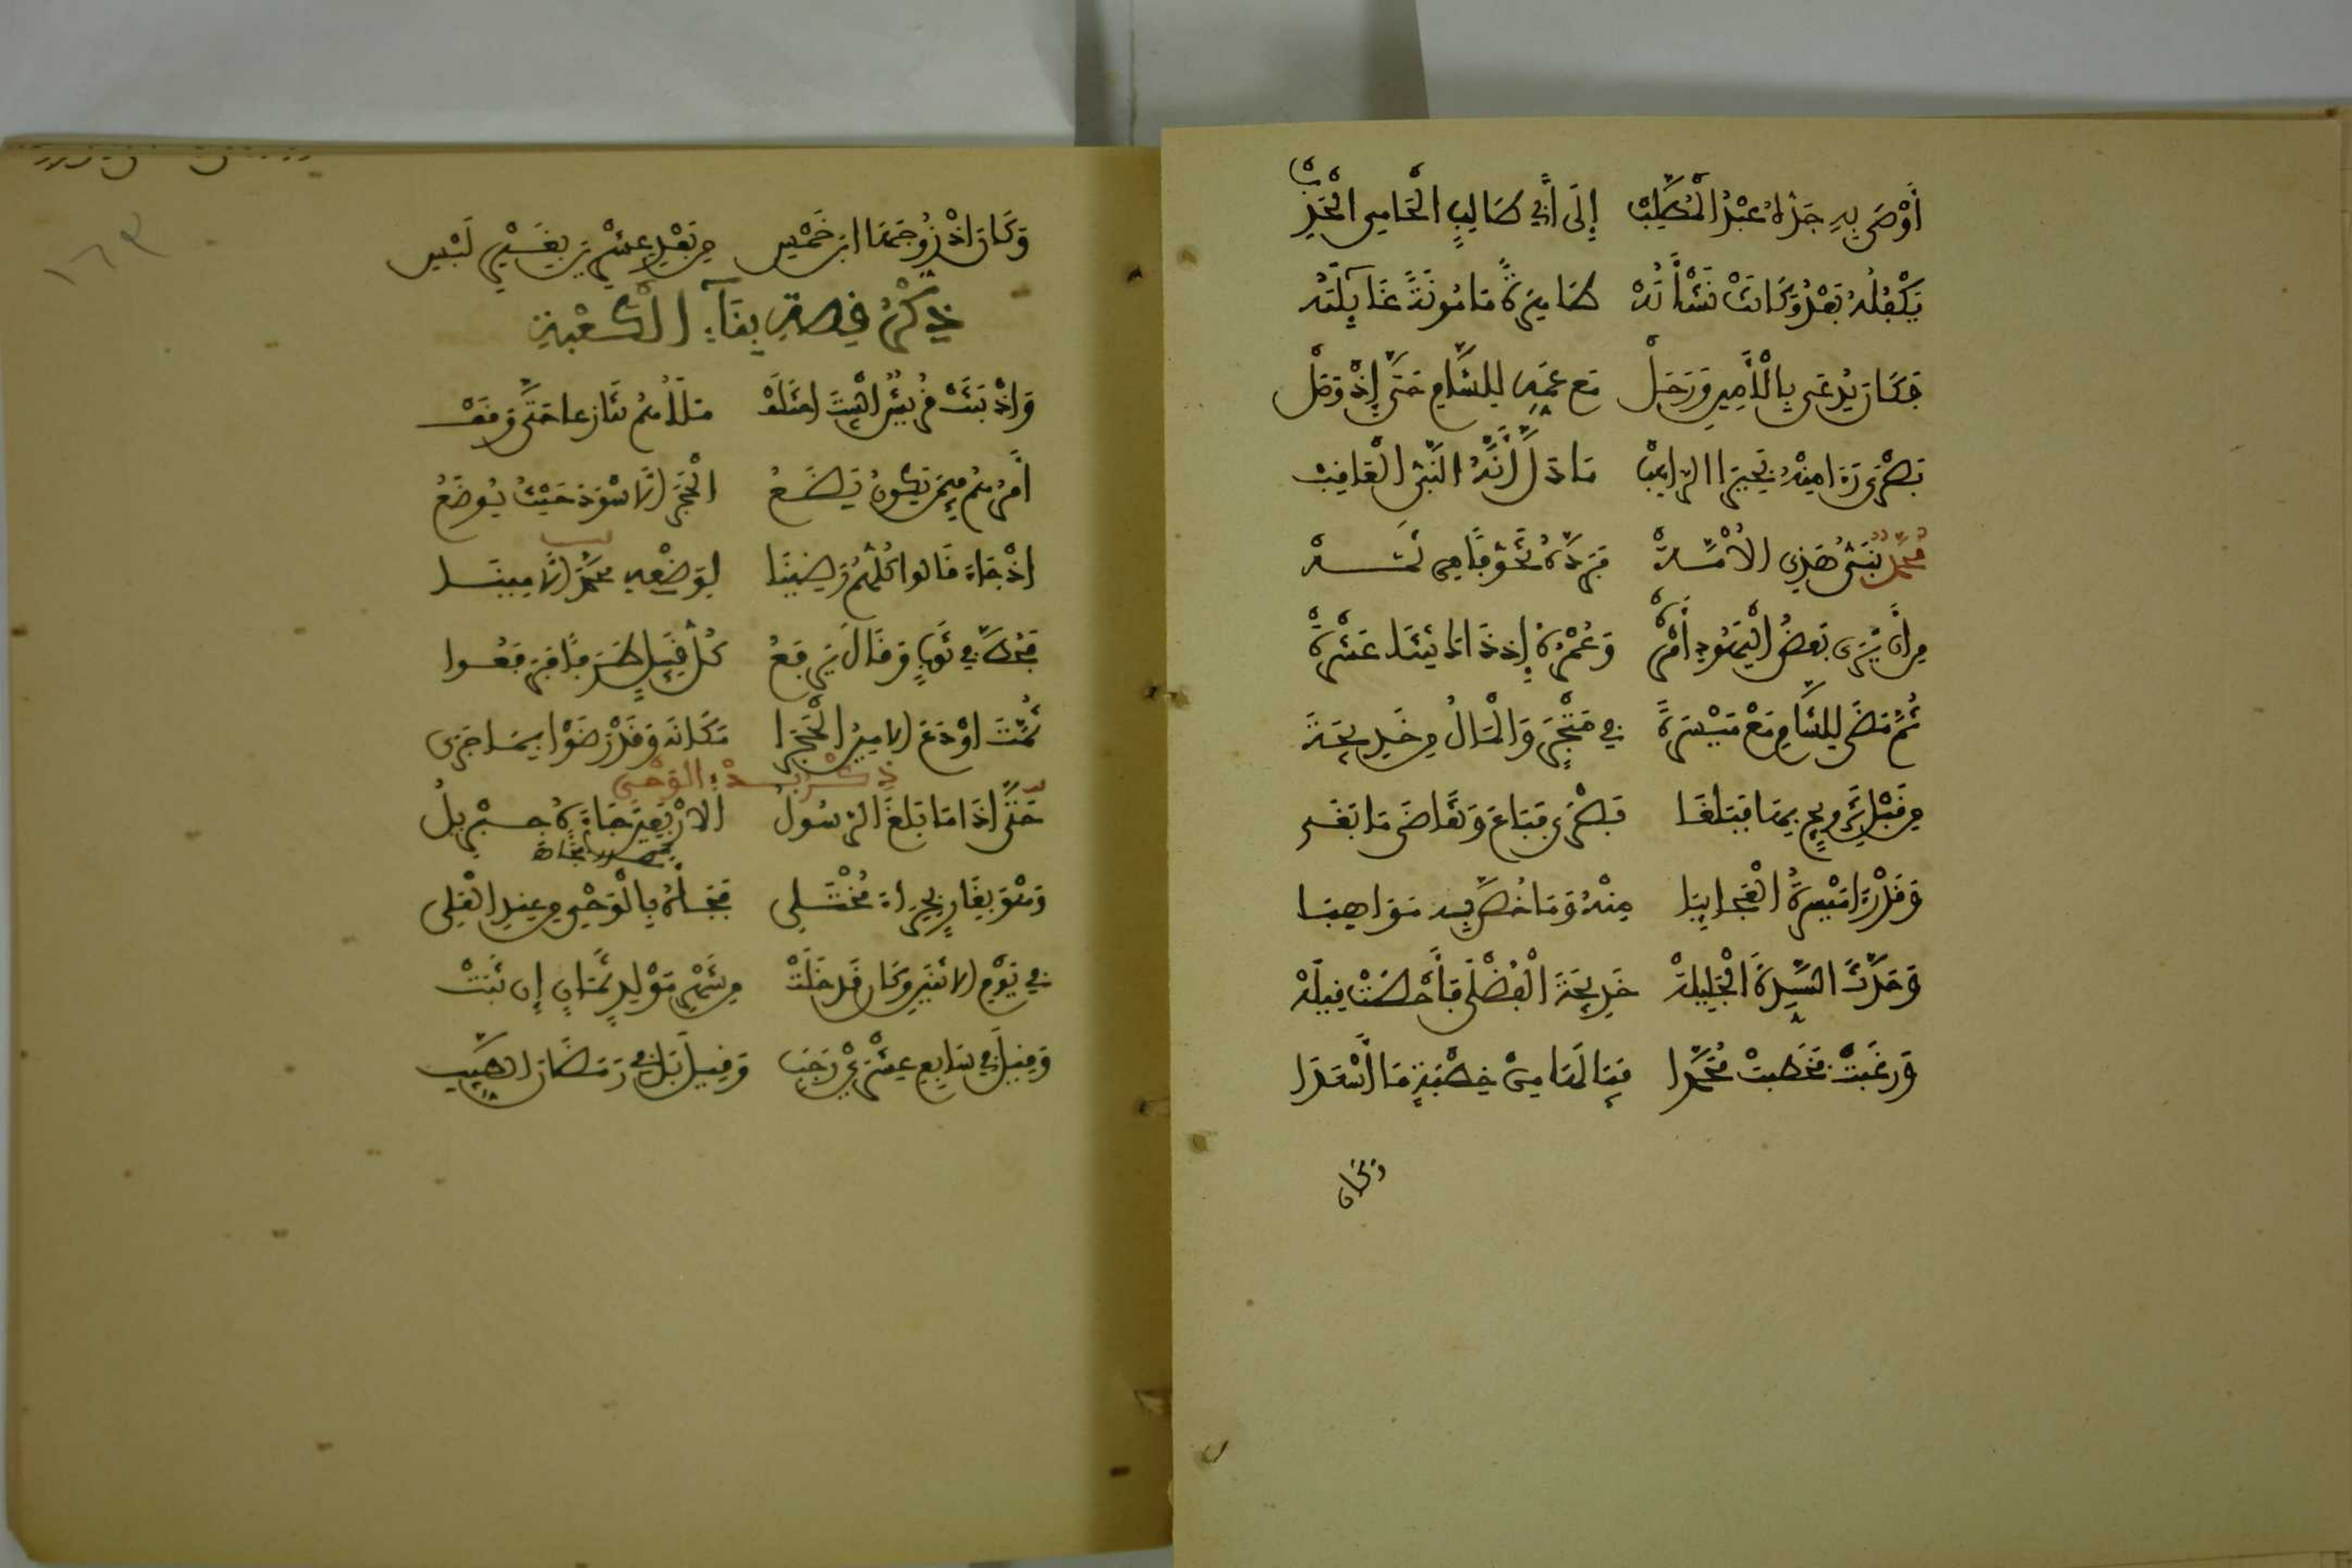 أَوْصَى بِهِ جَدُّهُ عَبْدُ الْمُطَّلِبْ إِلَى أَبِي طَالِبٍ الْحَامِي الْحَدِبْ
يَكْفُلُهُ بَعْدُ وَكَانَتْ نَشْأَتُهْ طَاهِرَةً مَامُونَةً غَائِلَتُهْ
فَكَانَ يُدْعَى بِالْأَمِينِ وَرَحَلْ مَعَ عَمِّهِ لِلشَّامِ حَتَّى إِذْ وَصَلْ
بُصْرَى رَءَا مِنْهُ بَحِيرَا الرَّاهِبْ مَا دَلَّ أَنَّهُ النَّبِيُّ الْعَاقِبْ
مُحَمَّدٌ نَبِيُّ هَذِي الْأُمَّةْ فَرَدَّهُ تَخَوُّفًا مِنْ ثَمَّةْ
مِنْ أَنْ يَرَى بَعْضُ الْيَهُودِ أَمْرَهْ وَعُمْرُهُ إِذْ ذَاكَ اثْنَتَا عَشْرَةْ
ثُمَّ مَضَى لِلشَّامِ مَعْ مَيْسَرَةَ فِي مَتْجَرٍ وَالْمَالُ مِنْ خَدِيجَةَ
مِنْ قَبْلِ تَزْوِيجٍ بِهَا فَبَلَغَا بُصْرَى فَبَاعَ وَتَقَاضَى مَا بَغَى
وَقَدْ رَءَا مَيْسَرَةُ الْعَجَائِبَا مِنْهُ وَمَا خُصَّ بِهِ مَوَاهِبَا
وَحَدَّثَ السَّيِّدَةَ الْجَلِيلَةْ خَدِيجَةَ الْفُضْلَى فَأَحْصَتْ قِيلَهْ
وَرَغِبَتْ فَخَطَبَتْ مُحَمَّدَا فَيَا لَهَا مِنْ خِطْبَةٍ مَا أَسْعَدَا
وكان
وَكَانَ إِذْ زُوِّجَهَا ابْنَ خَمْسِ مِنْ بَعْدِ عِشْرِينَ بِغَيْرِ لَبْسِ
ذِكْرُ قِصَّةِ بِنَاءِ الْكَعْبَةِ
وَإِذْ بَنَتْ قُرَيْشٌ الْبَيْتَ اخْتَلَفْ مَلَأُهُمْ تَنَازُعًا حَتَّى وَقَفْ
أَمْرُهُمْ فِيمَنْ يَكُونُ يَضَعُ الْحَجَرَ الْأَسْوَدَ حَيْثُ يُوضَعُ
إِذْ جَاءَ قَالُوا كُلُّهُمْ رَضِينَا لِوَضْعِهِ مُحَمَّدَ الْأَمِينَا
فَحُطَّ فِي ثَوْبٍ وَقَالَ يَرْفَعُ كُلُّ قَبِيلٍ طَرَفًا فَرَفَعُوا
ثُمَّتَ أَوْدَعَ الْأَمِينُ الْحَجَرَا مَكَانَهُ وَقَدْ رَضَوْا بِمَا جَرَى
ذكر بدء الوحي
حَتَّى إِذَا مَا بَلَغَ الرَّسُولُ الْأَرْبَعِينَ جَاءَهُ جِبْرِيلُ
وَهْوَ بِغَارٍ بِحِرَاءَ مُخْتَلِي فَجَاءَهُ بِالْوَحْيِ مِنْ عِنْدِ الْعَلِي
فِي يَوْمِ الِاثْنَيْنِ وَكَانَ قَدْ خَلَتْ مِنْ شَهْرِ مَوْلِدٍ ثَمَانٍ إِنْ ثَبَتْ
وَقِيلَ فِي سَابِعِ عِشْرِي رَجَبِ وَقِيلَ بَلْ فِي رَمَضَانَ الطَّيِّبِ
١٦٣